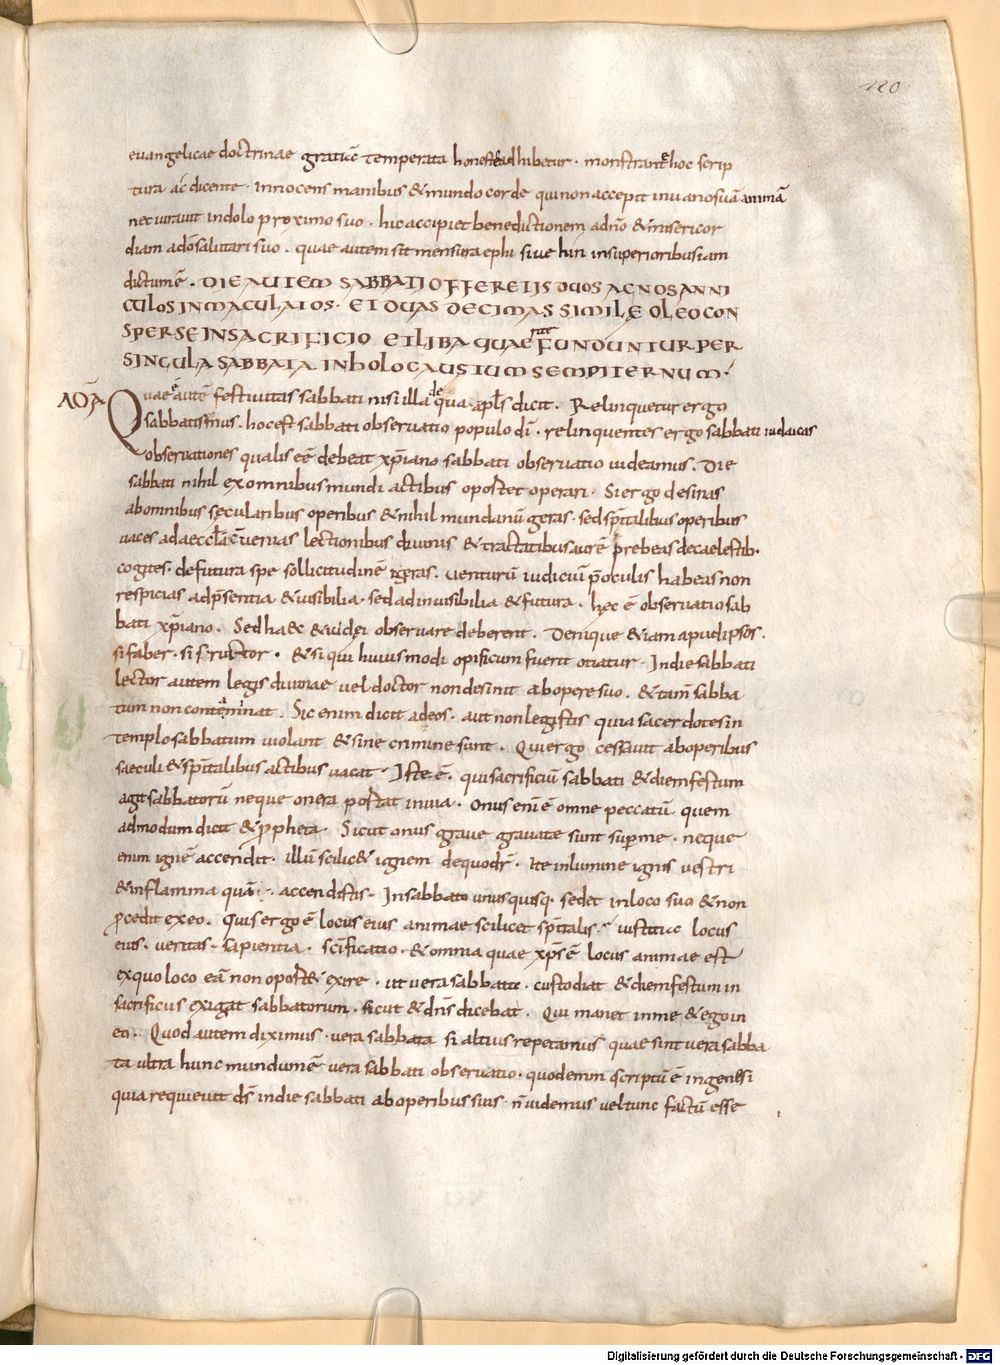 120
euangelicae doctrinae gratiae temperata honeste adhibetur · monstrante hoc scrip
tura ac dicente · innocens manibus & mundo corde qui non accepit in uano suā animā
nec iurauit in dolo proximo suo · hic accipiet benedictionem a dn̄o & misericor
diam a dō salutari suo · quae autem sit mensura ephi siue hin in superioribus iam
dictum ē · DIE AUTEM SABBATI OFFERETIS DUOS AGNOS ANNI
CULOS INMACULATOS · ET DUAS DECIMAS SIMILE OLEO CON
SPERSE IN SACRIFICIO ET LIBA QUAE RITE FUNDUNTUR PER
SINGULA SABBATA IN HOLOCAUSTUM SEMPITERNUM ·
Quae ē autē festiuitas sabbati nisi illa de qua apl̄s dicit · Relinquetur ergo
sabbatismus · hoc est sabbati obseruatio populo dī · relinquentes ergo sabbati iudaicas
obseruationes qualis eē debeat xp̄iano sabbati obseruatio uideamus · Die
sabbati nihil ex omnibus mundi actibus oportet operari · Si ergo desinas
ab omnibus secularibus operibus & nihil mundanū geras · sed sp̄italibus operibus
uaces ad aeccl̄am conuenias lectionibus diuinis & tractatibus aurē prebeas de caelestib·
cogites · de futura spe sollicitudinē geras · uenturū iudiciū p̄ oculis habeas non
respicias ad p̄sentia & uisibilia · sed ad inuisibilia & futura · hęc ē obseruatio sab
bati xp̄iano · Sed haec & iudei obseruare deberent · Denique & iam apud ipsos ·
si faber · si structor · & si qui huiusmodi opificum fuerit otiatur · In die sabbati
lector autem legis diuinae uel doctor non desinit ab opere suo · & tam̄ sabba
tum non contaminat · Sic enim dicit ad eos · aut non legistis quia sacerdotes in
templo sabbatum uiolant & sine crimine sunt · Qui ergo cessauit ab operibus
saeculi & sp̄italibus actibus uacat · Iste ē · qui sacrificiū sabbati & diem festum
agit sabbatorū neque onera portat in uia · Onus enī ē omne peccatū quem
admodum dicit & propheta · Sicut onus graue grauatae sunt super me · neque
enim ignē accendit · illū scilic& ignem de quo dr̄ · Ite in lumine ignis uestri
& in flamma quā accendistis · In sabbato unusquisq· sedet in loco suo & non
procedit ex eo · Quis ergo ē locus eius animae scilicet sp̄italis · iustitiae locus
eius · ueritas · sapientia · sc̄ificatio · & omnia quae xp̄s ē locus animae est
ex quo loco eā non oport& exire · ut uera sabbata custodiat & diem festum in
sacrificiis exigat sabbatorum · sicut & dn̄s dicebat · Qui manet in me & ego in
eo · Quod autem diximus · uera sabbata si altius repetamus quae sint uera sabba
ta ultra hunc mundum ē uera sabbati obseruatio · quod enim scriptū ē in genesi
quia requieuit ds̄ in die sabbati ab operibus suis · n̄ uidemus uel tunc factū esse
Digitalisierung gefördert durch die Deutsche Forschungsgemeinschaft - DFG